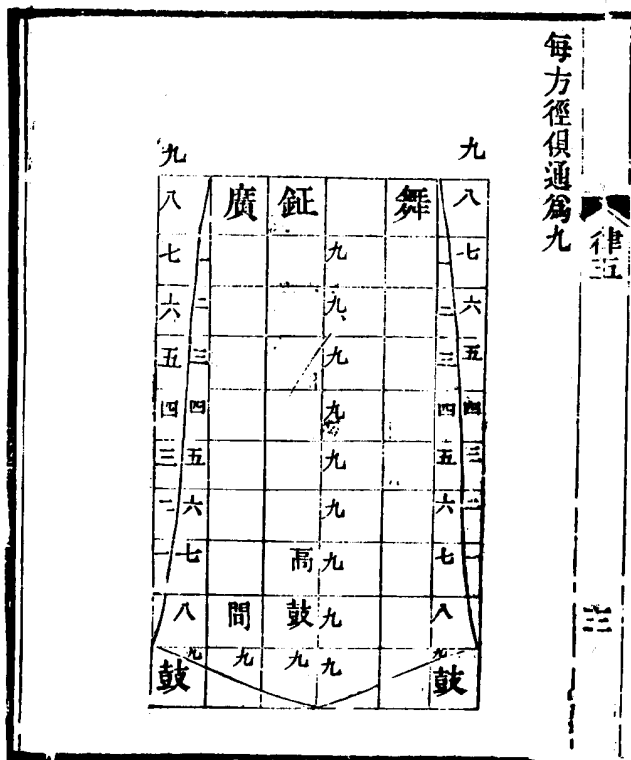 每方徑俱通爲九
律五
九 九
八 廣 鉦 舞 八
七 一 九 一 七
六 二 九 二 六
五 三 九 三 五
四 四 九 四 四
三 五 九 五 三
二 六 九 六 二
一 七 高 九 七 一
八 間 鼓 九 八
九 九 九 九 九
鼓 鼓